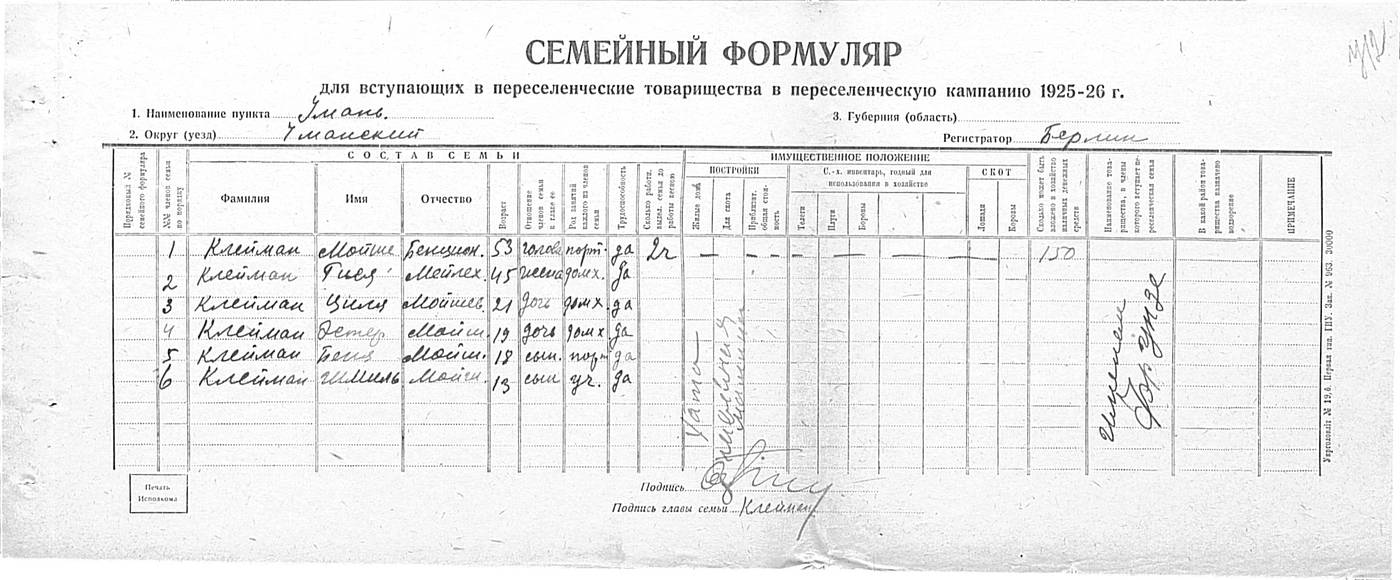 СЕМЕЙНЫЙ ФОРМУЛЯР
для вступающих в переселенческие товарищества в переселенческую кампанию 1925-26 г.
1. Наименование пункта Умань. 3. Губерния (область)
2. Округ (уезд) Уманский Регистратор Берлин
СОСТАВ СЕМЬИ ИМУЩЕСТВЕННОЕ ПОЛОЖЕНИЕ
Порядковый № семейного формуляра
№№ членов семьи по порядку
Фамилия Имя Отчество
Возраст
Отношение членов семьи к главе ее
Род занятий каждого из членов семьи
Трудоспособность
Сколько работн. выдел. семья до работы весною
ПОСТРОЙКИ
Жилые дома
Для скота
Приблизит. общая стоимость
С.-х. инвентарь, годный для использования в хозяйстве
Телеги Плуги Бороны
СКОТ
Лошади Коровы
Сколько может быть вложено в хозяйство наличных денежных средств
Наименование товарищества, в члены которого вступает переселенческая семья
В какой район товарищества назначено водворение
ПРИМЕЧАНИЕ
1 Клейман Мойше Бенцион. 53 голова порт. да 2ч — — — — — — — — — — 150
2 Клейман Гися Мейлех. 45 жена домх. да
3 Клейман Циля Мойшев. 21 дочь домх. да
4 Клейман Эстер Мойш. 19 дочь домх да
5 Клейман Бенц Мойш. 18 сын. порт да
6 Клейман Шмиль Мойш. 13 сын уч. да
Хата
Фрунзе
Печать Исполкома
Подпись
Подпись главы семьи Клейман
Укрголовліт № 19,6. Первая тип. ГПУ. Зак. № 963. 30000